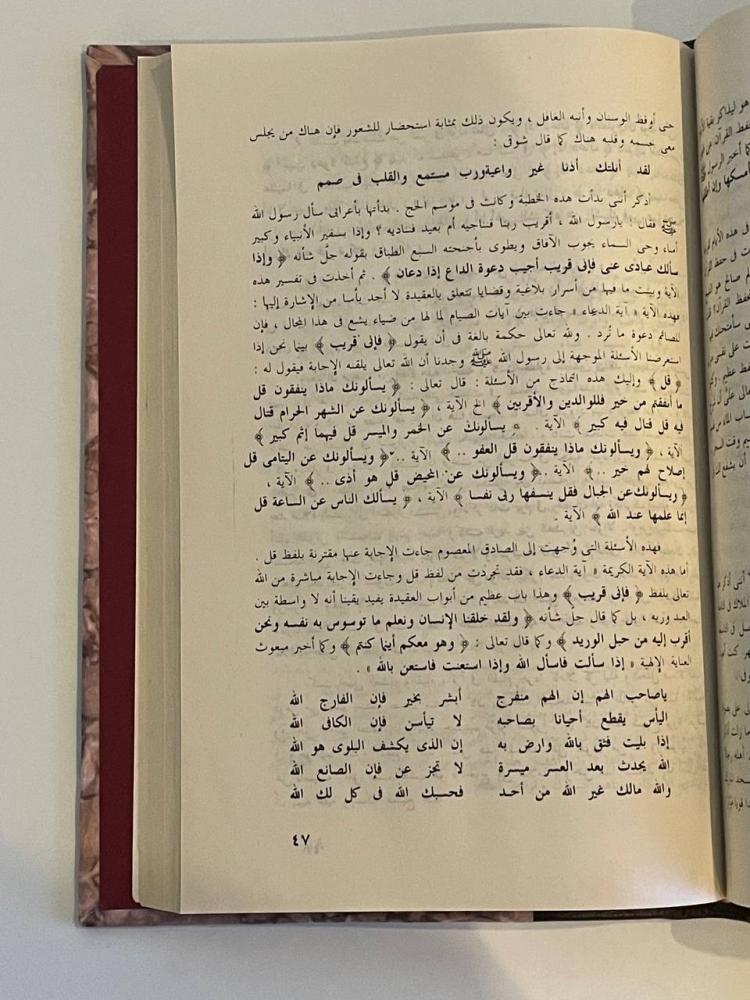 حتى أوقظ الوسنان وأنبه الغافل ، ويكون ذلك بمثابة استحضار للشعور فإن هناك من يجلس
معى بجسمه وقلبه هناك كما قال شوقى :
لقد أنلتك أذنا غير واعية ورب مستمع والقلب فى صمم
أذكر أننى بدأت هذه الخطبة وكانت فى موسم الحج . بدأتها بأعرابى سأل رسول الله
ﷺ فقال : يارسول الله ، أقريب ربنا فنناجيه أم بعيد فنناديه ؟ وإذا بسفير الأنبياء وكبير
أمناء وحى السماء يجوب الآفاق ويطوى بأجنحته السبع الطباق بقوله جلّ شأنه ﴿ وإذا
سألك عبادى عنى فإنى قريب أجيب دعوة الداع إذا دعان ﴾ . ثم أخذت فى تفسير هذه
الآية وبينت ما فيها من أسرار بلاغية وقضايا تتعلق بالعقيدة لا أجد بأسا من الإشارة إليها :
فهذه الآية « آية الدعاء » جاءت بين آيات الصيام لما لها من ضياء يشع فى هذا المجال ، فإن
للصائم دعوة ما تُرد . ولله تعالى حكمة بالغة فى أن يقول ﴿ فإنى قريب ﴾ بينما نحن إذا
استعرضنا الأسئلة الموجهة إلى رسول الله ﷺ وجدنا أن الله تعالى يلقنه الإجابة فيقول له :
﴿ قل ﴾ وإليك هذه النماذج من الأسئلة : قال تعالى : ﴿ يسألونك ماذا ينفقون قل
ما أنفقتم من خير فللوالدين والأقربين ﴾ الخ الآية ، ﴿ يسألونك عن الشهر الحرام قتال
فيه قل قتال فيه كبير ﴾ الآية . ﴿ يسألونك عن الخمر والميسر قل فيهما إثم كبير ﴾
الآية ، ﴿ ويسألونك ماذا ينفقون قل العفو .. ﴾ الآية .. ﴿ ويسألونك عن اليتامى قل
إصلاح لهم خير .. ﴾ الآية .. ﴿ ويسألونك عن المحيض قل هو أذى .. ﴾ الآية ،
﴿ ويسألونك عن الجبال فقل ينسفها ربى نسفا ﴾ الآية ، ﴿ يسألك الناس عن الساعة قل
إنما علمها عند الله ﴾ الآية .
فهذه الأسئلة التى وُجهت إلى الصادق المعصوم جاءت الإجابة عنها مقترنة بلفظ قل .
أما هذه الآية الكريمة « آية الدعاء ، فقد تجردت من لفظ قل وجاءت الإجابة مباشرة من الله
تعالى بلفظ ﴿ فإنى قريب ﴾ وهذا باب عظيم من أبواب العقيدة يفيد يقينا أنه لا واسطة بين
العبد وربه ، بل كما قال جل شأنه ﴿ ولقد خلقنا الإنسان ونعلم ما توسوس به نفسه ونحن
أقرب إليه من حبل الوريد ﴾ وكما قال تعالى : ﴿ وهو معكم أينما كنتم ﴾ وكما أخبر مبعوث
العناية الإلهية « إذا سألت فاسأل الله وإذا استعنت فاستعن بالله » .
ياصاحب الهم إن الهم منفرج أبشر بخير فإن الفارج الله
اليأس يقطع أحيانا بصاحبه لا تيأسن فإن الكافى الله
إذا بليت فثق بالله وارض به إن الذى يكشف البلوى هو الله
الله يحدث بعد العسر ميسرة لا تجز عن فإن الصانع الله
والله مالك غير الله من أحد فحسبك الله فى كل لك الله
٤٧